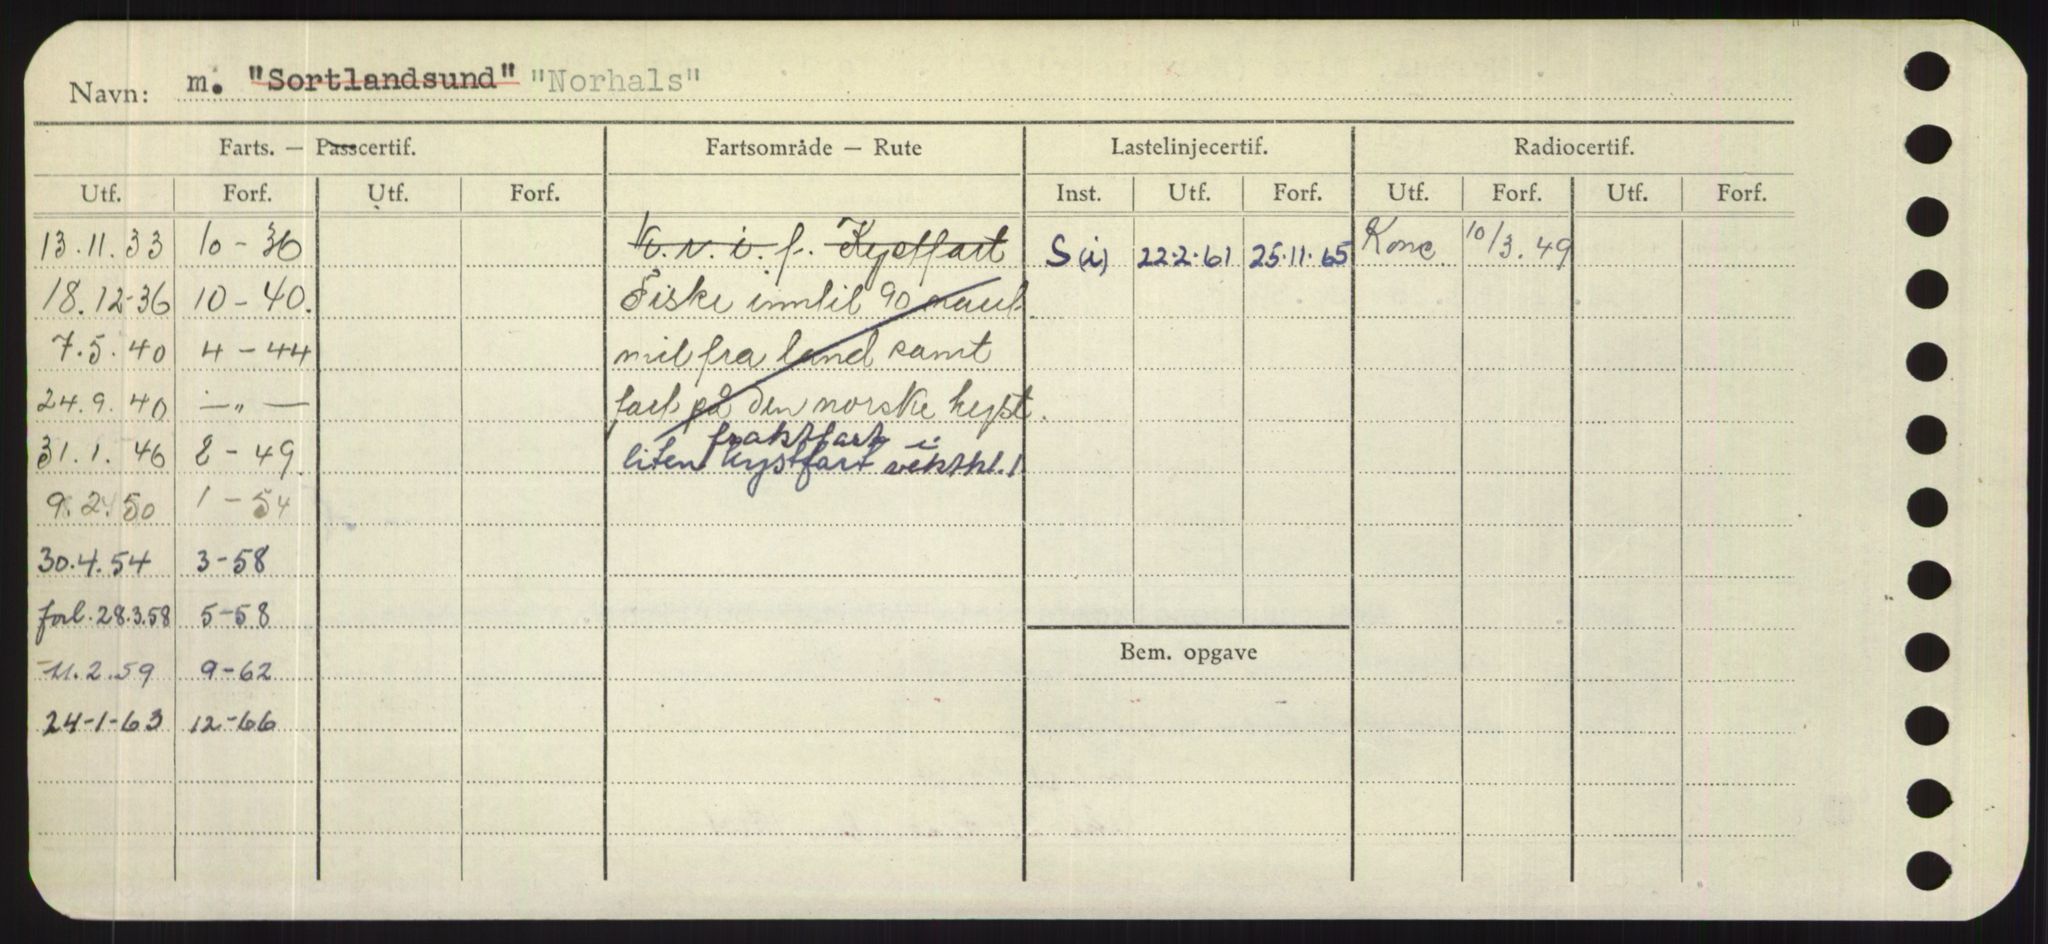 Navn: m. "Sortlandsund" "Norhals"
Farts. — Passcertif. Fartsområde — Rute Lastelinjecertif. Radiocertif.
Utf. Forf. Utf. Forf. Inst. Utf. Forf. Utf. Forf. Utf. Forf.
13.11.33 10-36 f. Kystfart S(i) 22.2.61 25.11.65 Konc. 10/3.49
18.12-36 10-40. Fiske inntil 90 naut.
7.5.40 4-44 mil fra land samt
24.9.40 —"— fart på den norske kyst.
fraktfart i
31.1.46 8-49. liten kystfart
9.2.50 1-54
30.4.54 3-58
forl. 28.3.58 5-58
Bem. opgave
11.2.59 9-62
24-1-63 12-66